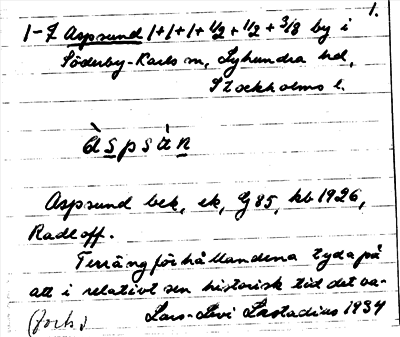 1.
1-7 Aspsund 1+1+1+1/2+1/2+3/8 by i
Söderby-Karls sn, Lyhundra hd,
Stockholms l.
àspsàn
Aspsund bek, ek, G85, kb 1926,
Radloff.
Terrängförhållandena tyda på
att i relativt sen historisk tid det va-
(forts.) Lars-Levi Læstadius 1934